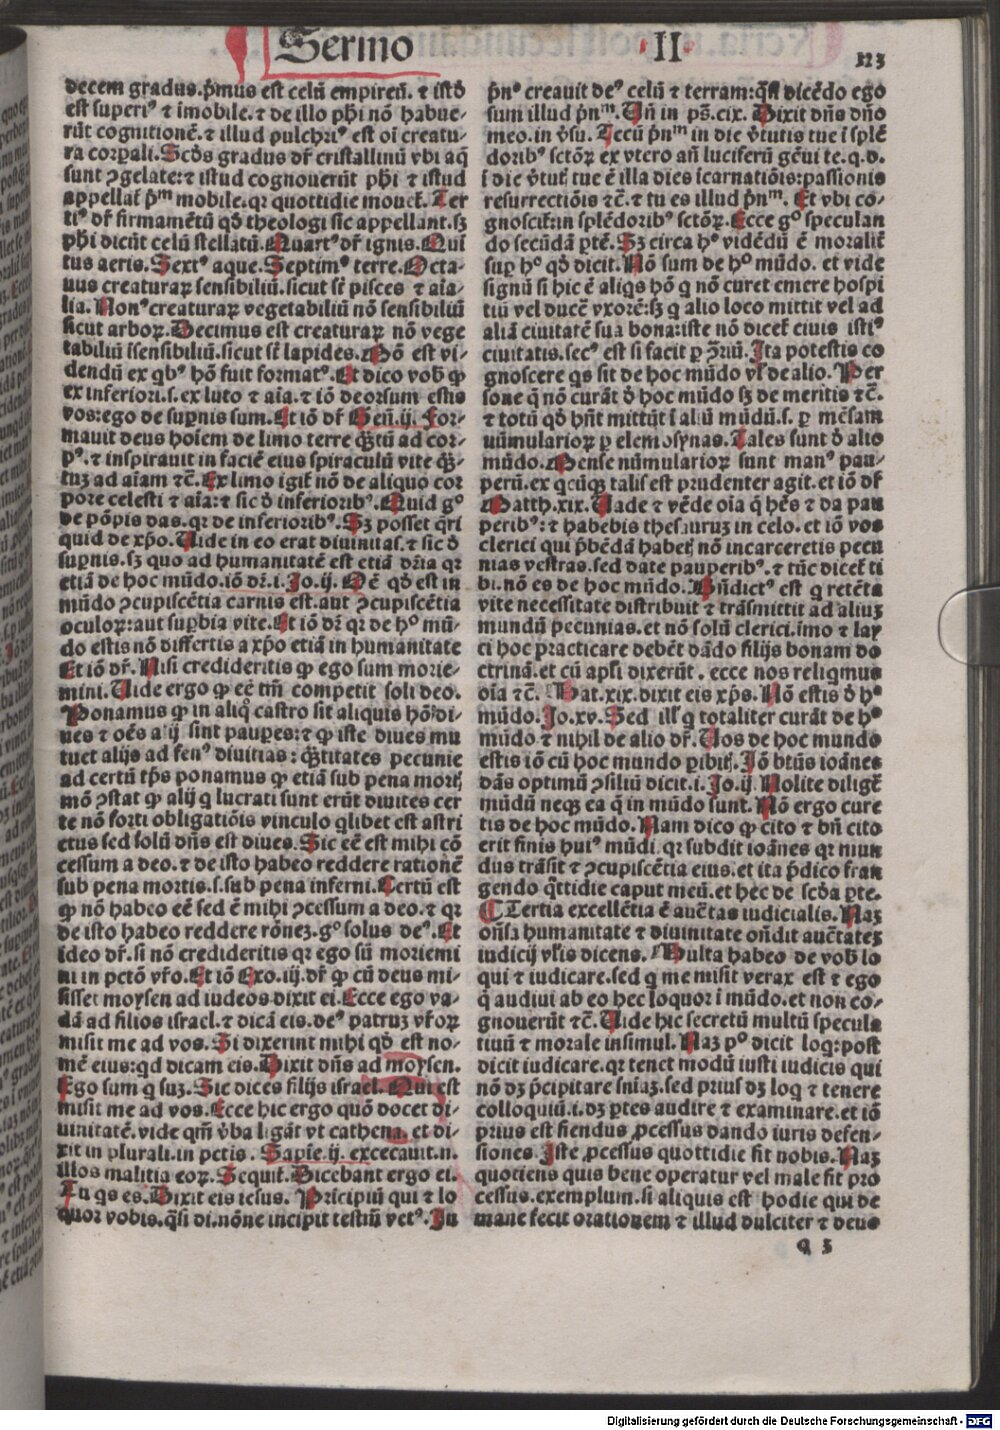 Sermo
II
123
decem gradus. p̄mus est celū empireū. ⁊ istđ
est superi⁹ ⁊ imobile. ⁊ de illo phi nō habue-
rūt cognitionē. ⁊ illud pulchri⁹ est oī creatu-
ra corꝑali. Scđs gradus dr̄ cristallinū vbi aq̄
sunt ꝯgelate: ⁊ istud cognouerūt phi ⁊ istud
appellāt p̄mᵐ mobile. qr quottidie mouet̄. Ter
ti⁹ dr̄ firmamētū qđ theologi sic appellant. sꝫ
phi dicūt celū stellatū. Quart⁹ dr̄ ignis. Quī
tus aeris. Sext⁹ aque. Septim⁹ terre. Octa-
uus creaturaꝝ sensibiliū. sicut st̄ pisces ⁊ aīa-
lia. Non⁹ creaturaꝝ vegetabiliū nō sensibiliū
sicut arboꝝ. Decimus est creaturaꝝ nō vege
tabiliū īsensibiliū. sicut st̄ lapides. Mō est vi-
dendū ex qb⁹ hō fuit format⁹. Et dico vob̄ ꝙ
ex inferiori. s. ex luto ⁊ aīa. ⁊ iō deorsum estis
vos: ego de supernis sum. Et iō dr̄ Geñ. ij. For-
mauit deus hoīem de limo terre q̄ꝫtū ad cor-
p⁹. ⁊ inspirauit in faciē eius spiraculū vite q̄ꝫ-
tuꝫ ad aīam ⁊c̄. Ex limo igit̄ nō de aliquo cor
pore celesti ⁊ aīa: ⁊ sic đ inferiorib⁹. Quid g⁰
de pōpis das. qr de inferiorib⁹. Sꝫ posset q̄ri
quid de xp̄o. Uide in eo erat diuinitas. ⁊ sic đ
suꝑnis. sꝫ quo ad humanitatē est etiā dr̄ia qr
etiā de hoc mūdo. iō dr̄. i. Jo. ij. Oē qđ est in
mūdo ꝯcupiscētia carnis est. aut ꝯcupiscētia
oculoꝝ: aut suꝑbia vite. Et iō dr̄ qr de h⁰ mū-
do estis nō differtis a xp̄o etiā in humanitate
Et iō dr̄. Nisi credideritis ꝙ ego sum morie-
mini. Uide ergo ꝙ eē tm̄ competit soli deo.
Ponamus ꝙ in aliq̊ castro sit aliquis hō di-
ues ⁊ oēs alij sint pauꝑes: ⁊ ꝙ iste diues mu
tuet alijs ad fen⁹ diuitias: q̄ꝫtitates pecunie
ad certū tp̄s ponamus ꝙ etiā sub pena mortꝭ
mō ꝯstat ꝙ alij q̇ lucrati sunt erūt diuites cer
te nō sorti obligatiōis vinculo q̇libet est astri
ctus sed solū dn̄s est diues. Sic eē est mihi cō
cessum a deo. ⁊ de isto habeo reddere rationē
sub pena mortis. s. sub pena inferni. Certū est
ꝙ nō habeo eē sed ē mihi ꝯcessum a deo. ⁊ qr
de isto habeo reddere rōnez. g⁰ solus de⁹. Et
ideo dr̄. si nō credideritis qr ego sū moriemi
ni in pctō vr̄o. Et iō Exo. iij. dr̄ ꝙ cū deus mi-
sisset moysen ad iudeos dixit ei. Ecce ego va-
dā ad filios israel. ⁊ dicā eis. de⁹ patruꝫ vr̄oꝝ
misit me ad vos. Si dixerint mihi qđ est no-
mē eius: qd dicam eis. Dixit dn̄s ad moysen.
Ego sum q̇ suꝫ. Sic dices filijs israel. Qui est
misit me ad vos. Ecce hic ergo quō docet di-
uinitatē. vide qm̄ v̄ba ligāt vt cathena. et di-
xit in plurali. in pctis. Sapie. ij. excecauit. n.
illos malitia eoꝝ. Sequit̄. Dicebant ergo ei.
Tu qs es. Dixit eis iesus. Prīcipiū qui ⁊ lo
quor vobis. q̄si di. nōne incipit testm̄ vet⁹. In
p̄n⁰ creauit de⁹ celū ⁊ terram: q̄si dicēdo ego
sum illud p̄nᵐ. Uñ in ps̄. cix. Dixit dn̄s dn̄o
meo. in v̄su. Tecū p̄nᵐ in die v̄tutis tue ī splē
dorib⁹ sctōꝝ ex vtero añ luciferū gēui te. q. d.
ī die v̄tutꝭ tue ē illa dies īcarnatiōis: passionis
resurrectiōis ⁊c̄. ⁊ tu es illud p̄nᵐ. Et vbi co-
gnoscit̄: in splēdorib⁹ sctōꝝ. Ecce g⁰ speculan
do secūdā ptē. Sꝫ circa h⁰ vidēdū ē moralit̄
suꝑ h⁰ qđ dicit. Nō sum de h⁰ mūdo. et vide
signū si hic ē aliqs hō q̇ nō curet emere hospi
tiū vel ducē vxorē: sꝫ q̇ alio loco mittit vel ad
aliā ciuitatē sua bona: iste nō dicet̄ ciuis isti⁹
ciuitatis. sec⁹ est si facit ꝑ ꝯr̄iū. Ita potestis co
gnoscere qs sit de hoc mūdo vl̄ de alio. Per
sone q̄ nō curāt đ hoc mūdo sꝫ de meritis ⁊c̄.
⁊ totū qđ hn̄t mittūt ī aliū mūdū. s. ꝑ mēsam
nūmularioꝝ ꝑ elemosynas. Tales sunt đ alio
mūdo. Mense nūmularioꝝ sunt man⁹ pau-
perū. ex q̇cūqꝫ talis est prudenter agit. et iō dr̄
Matth. xix. Uade ⁊ vēde oīa q̄ hēs ⁊ da pau
perib⁹: ⁊ habebis thesauruꝫ in celo. et iō vos
clerici qui p̄bēdā habetꝭ nō incarceretis pecu
nias vestras. sed date pauperib⁹. ⁊ tūc dicet̄ ti
bi. nō es de hoc mūdo. Bn̄dict⁹ est q̇ retēta
vite necessitate distribuit ⁊ trāsmittit ad aliuꝫ
mundū pecunias. et nō solū clerici. imo ⁊ lay
ci hoc practicare debēt dādo filijs bonam do
ctrinā. et cū apl̄i dixerūt. ecce nos reliqmus
oīa ⁊c̄. Mat. xix. dixit eis xp̄s. Nō estis đ h⁰
mūdo. Jo. xv. Sed illꝭ q̇ totaliter curāt de h⁰
mūdo ⁊ nihil de alio dr̄. Uos de hoc mundo
estis iō cū hoc mundo ꝑibitꝭ. Iō btūs ioānes
dās optimū ꝯsiliū dicit. i. Jo. ij. Nolite dilige̅
mūdū neqꝫ ea q̄ in mūdo sunt. Nō ergo cure
tis de hoc mūdo. Nam dico ꝙ cito ⁊ bn̄ cito
erit finis hui⁹ mūdi. qr subdit ioānes qr mun
dus trāsit ⁊ ꝯcupiscētia eius. et ita p̄dico fran
gendo q̇ttidie caput meū. et hec de scđa pte.
¶ Tertia excellētia ē auc̄tas iudicialis. Naꝫ
on̄sa humanitate ⁊ diuinitate on̄dit auc̄tatez
iudicij vl̄is dicens. Multa habeo de vob̄ lo
qui ⁊ iudicare. sed q̇ me misit verax est ⁊ ego
q̄ audiui ab eo hec loquor ī mūdo. et non co-
gnouerūt ⁊c̄. Uide hic secretū multū specula
tiuū ⁊ morale insimul. Naꝫ p⁰ dicit loq̇: post
dicit iudicare. qr tenet modū iusti iudicis qui
nō dꝫ p̄cipitare sn̄iaꝫ. sed prius dꝫ loq̇ ⁊ tenere
colloquiū. i. dꝫ ptes audire ⁊ examinare. et iō
prius est fiendus ꝓcessus dando iuris defen-
siones. Iste ꝓcessus quottidie fit nobis. Naꝫ
quotiens quis bene operatur vel male fit pro
cessus. exemplum. si aliquis est hodie qui de
mane fecit orationem ⁊ illud dulciter ⁊ deus
q 3
Digitalisierung gefördert durch die Deutsche Forschungsgemeinschaft - DFG